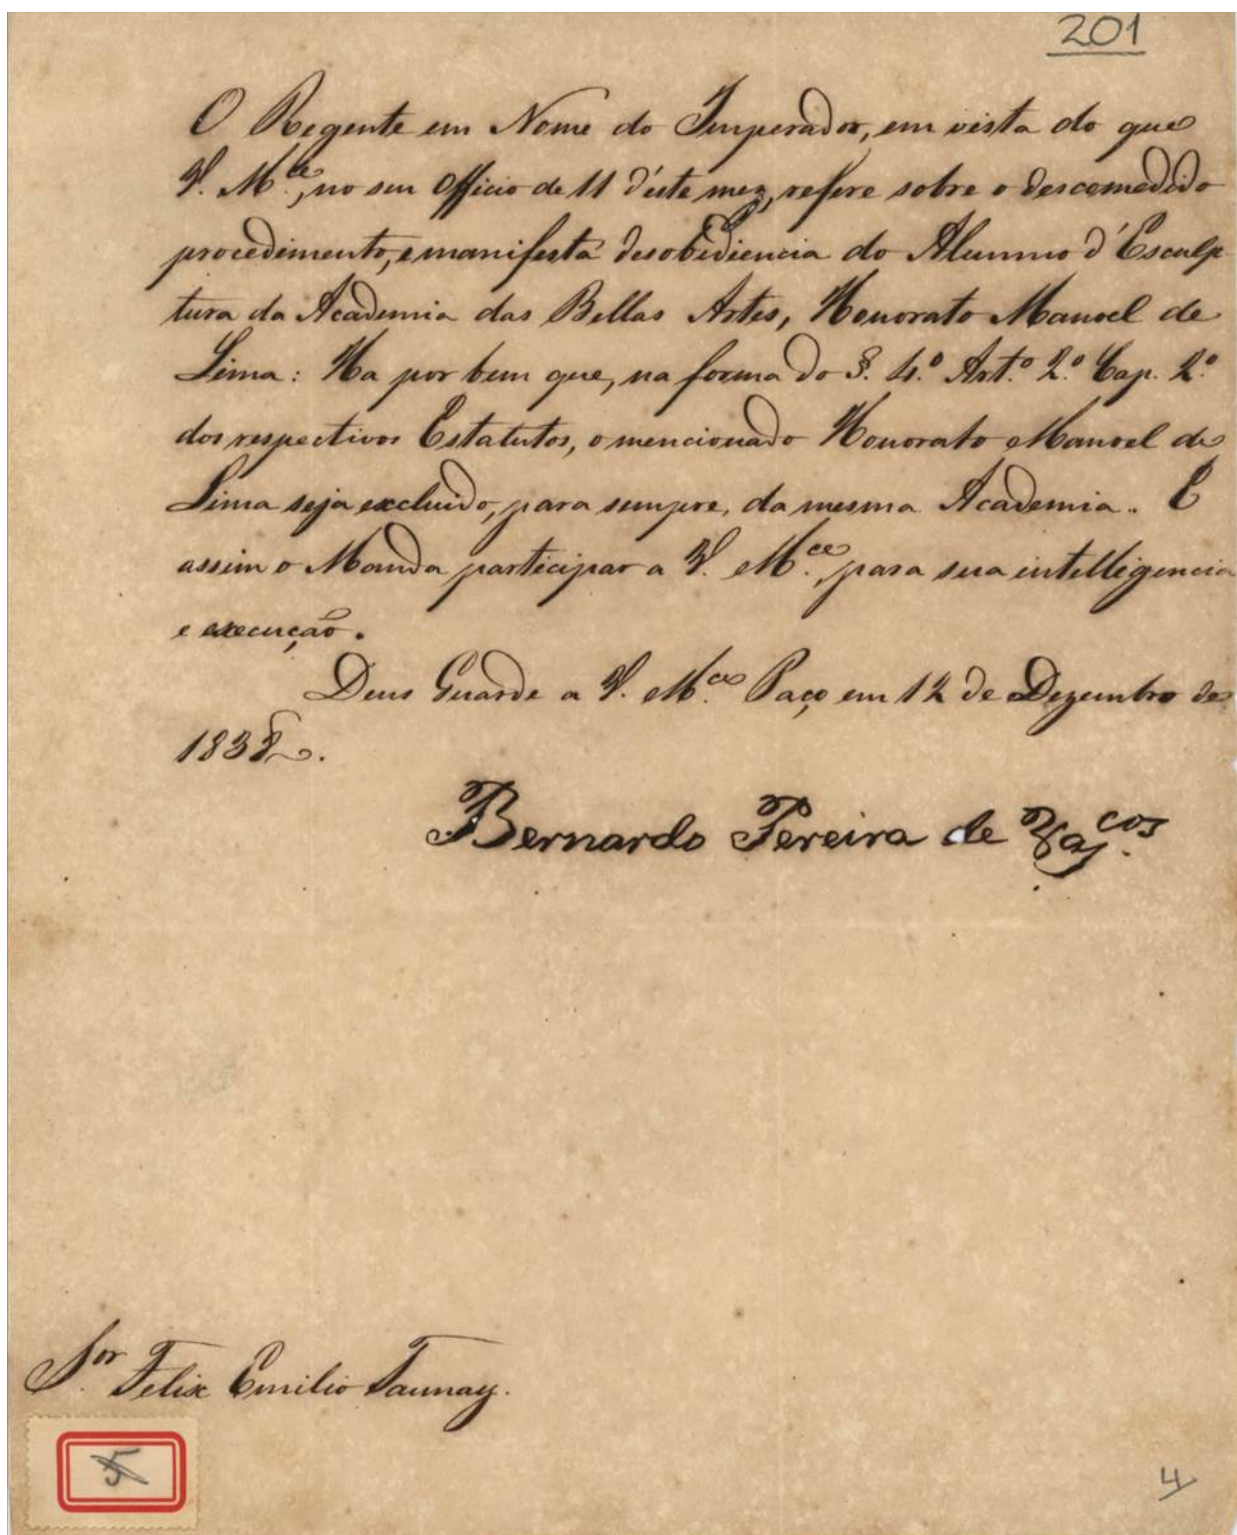 201
O Regente em Nome do Imperador, em vista do que
V. M.ce, no seu Officio de 11 d'este mez, refere sobre o descomedido
procedimento, e manifesta desobediencia do Alumno d'Esculp
tura da Academia das Bellas Artes, Honorato Manoel de
Lima: Ha por bem que, na forma do §. 4.º Art.º 2.º Cap. 2.º
dos respectivos Estatutos, o mencionado Honorato Manoel de
Lima seja excluido, para sempre, da mesma Academia. E
assim o Manda participar a V. M.ce, para sua intelligencia
e execução.
Deus Guarde a V. M.ce Paço em 12 de Dezembro de
1838.
Bernardo Pereira de Vas.cos
S.or Felix Emilio Taunay.
5
4